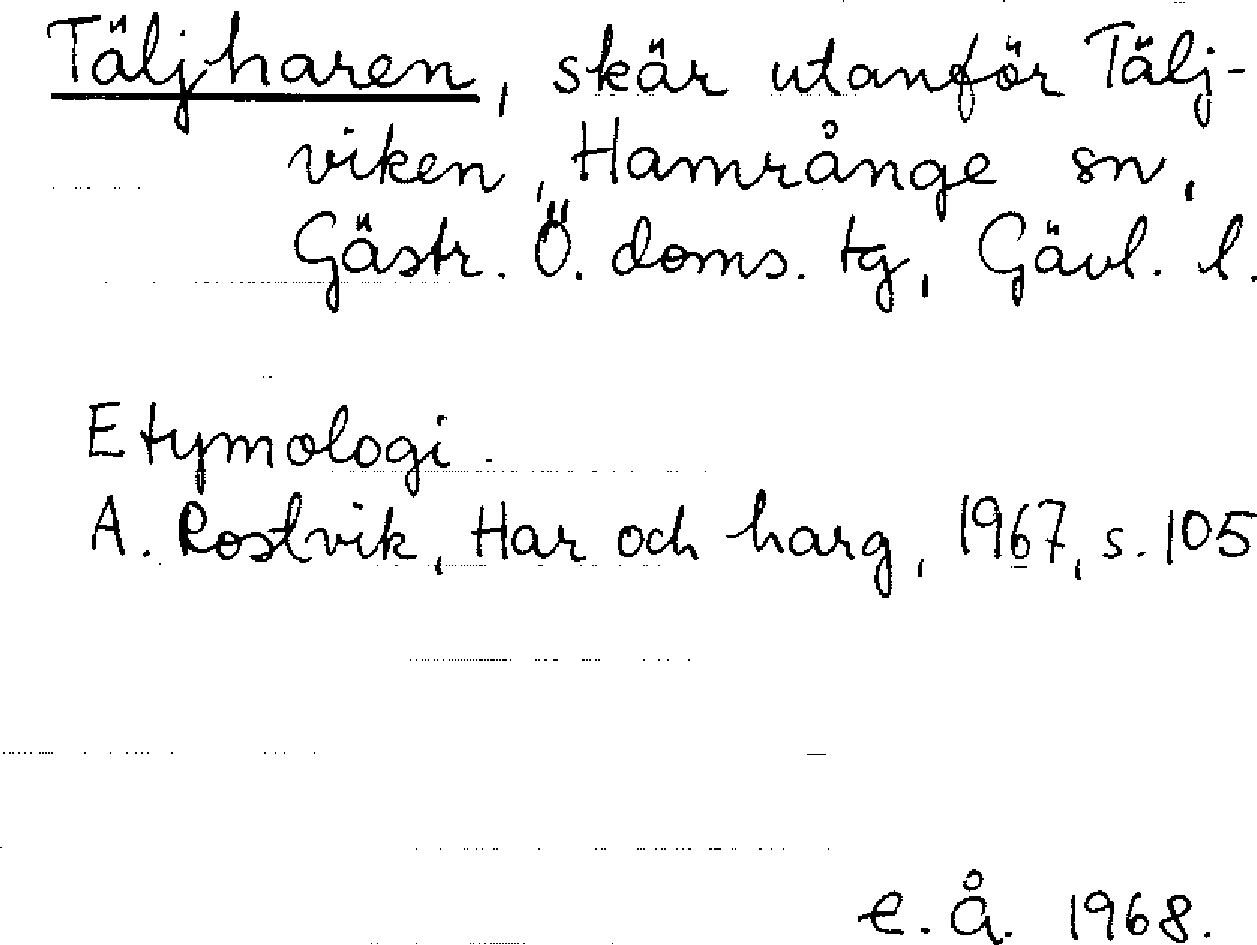 Täljharen, skär utanför Tälj-
viken, Hamrånge sn,
Gästr. Ö. doms. tg, Gävl. l.
Etymologi.
A. Rostvik, Har och harg, 1967, s. 105
C. Å. 1968.